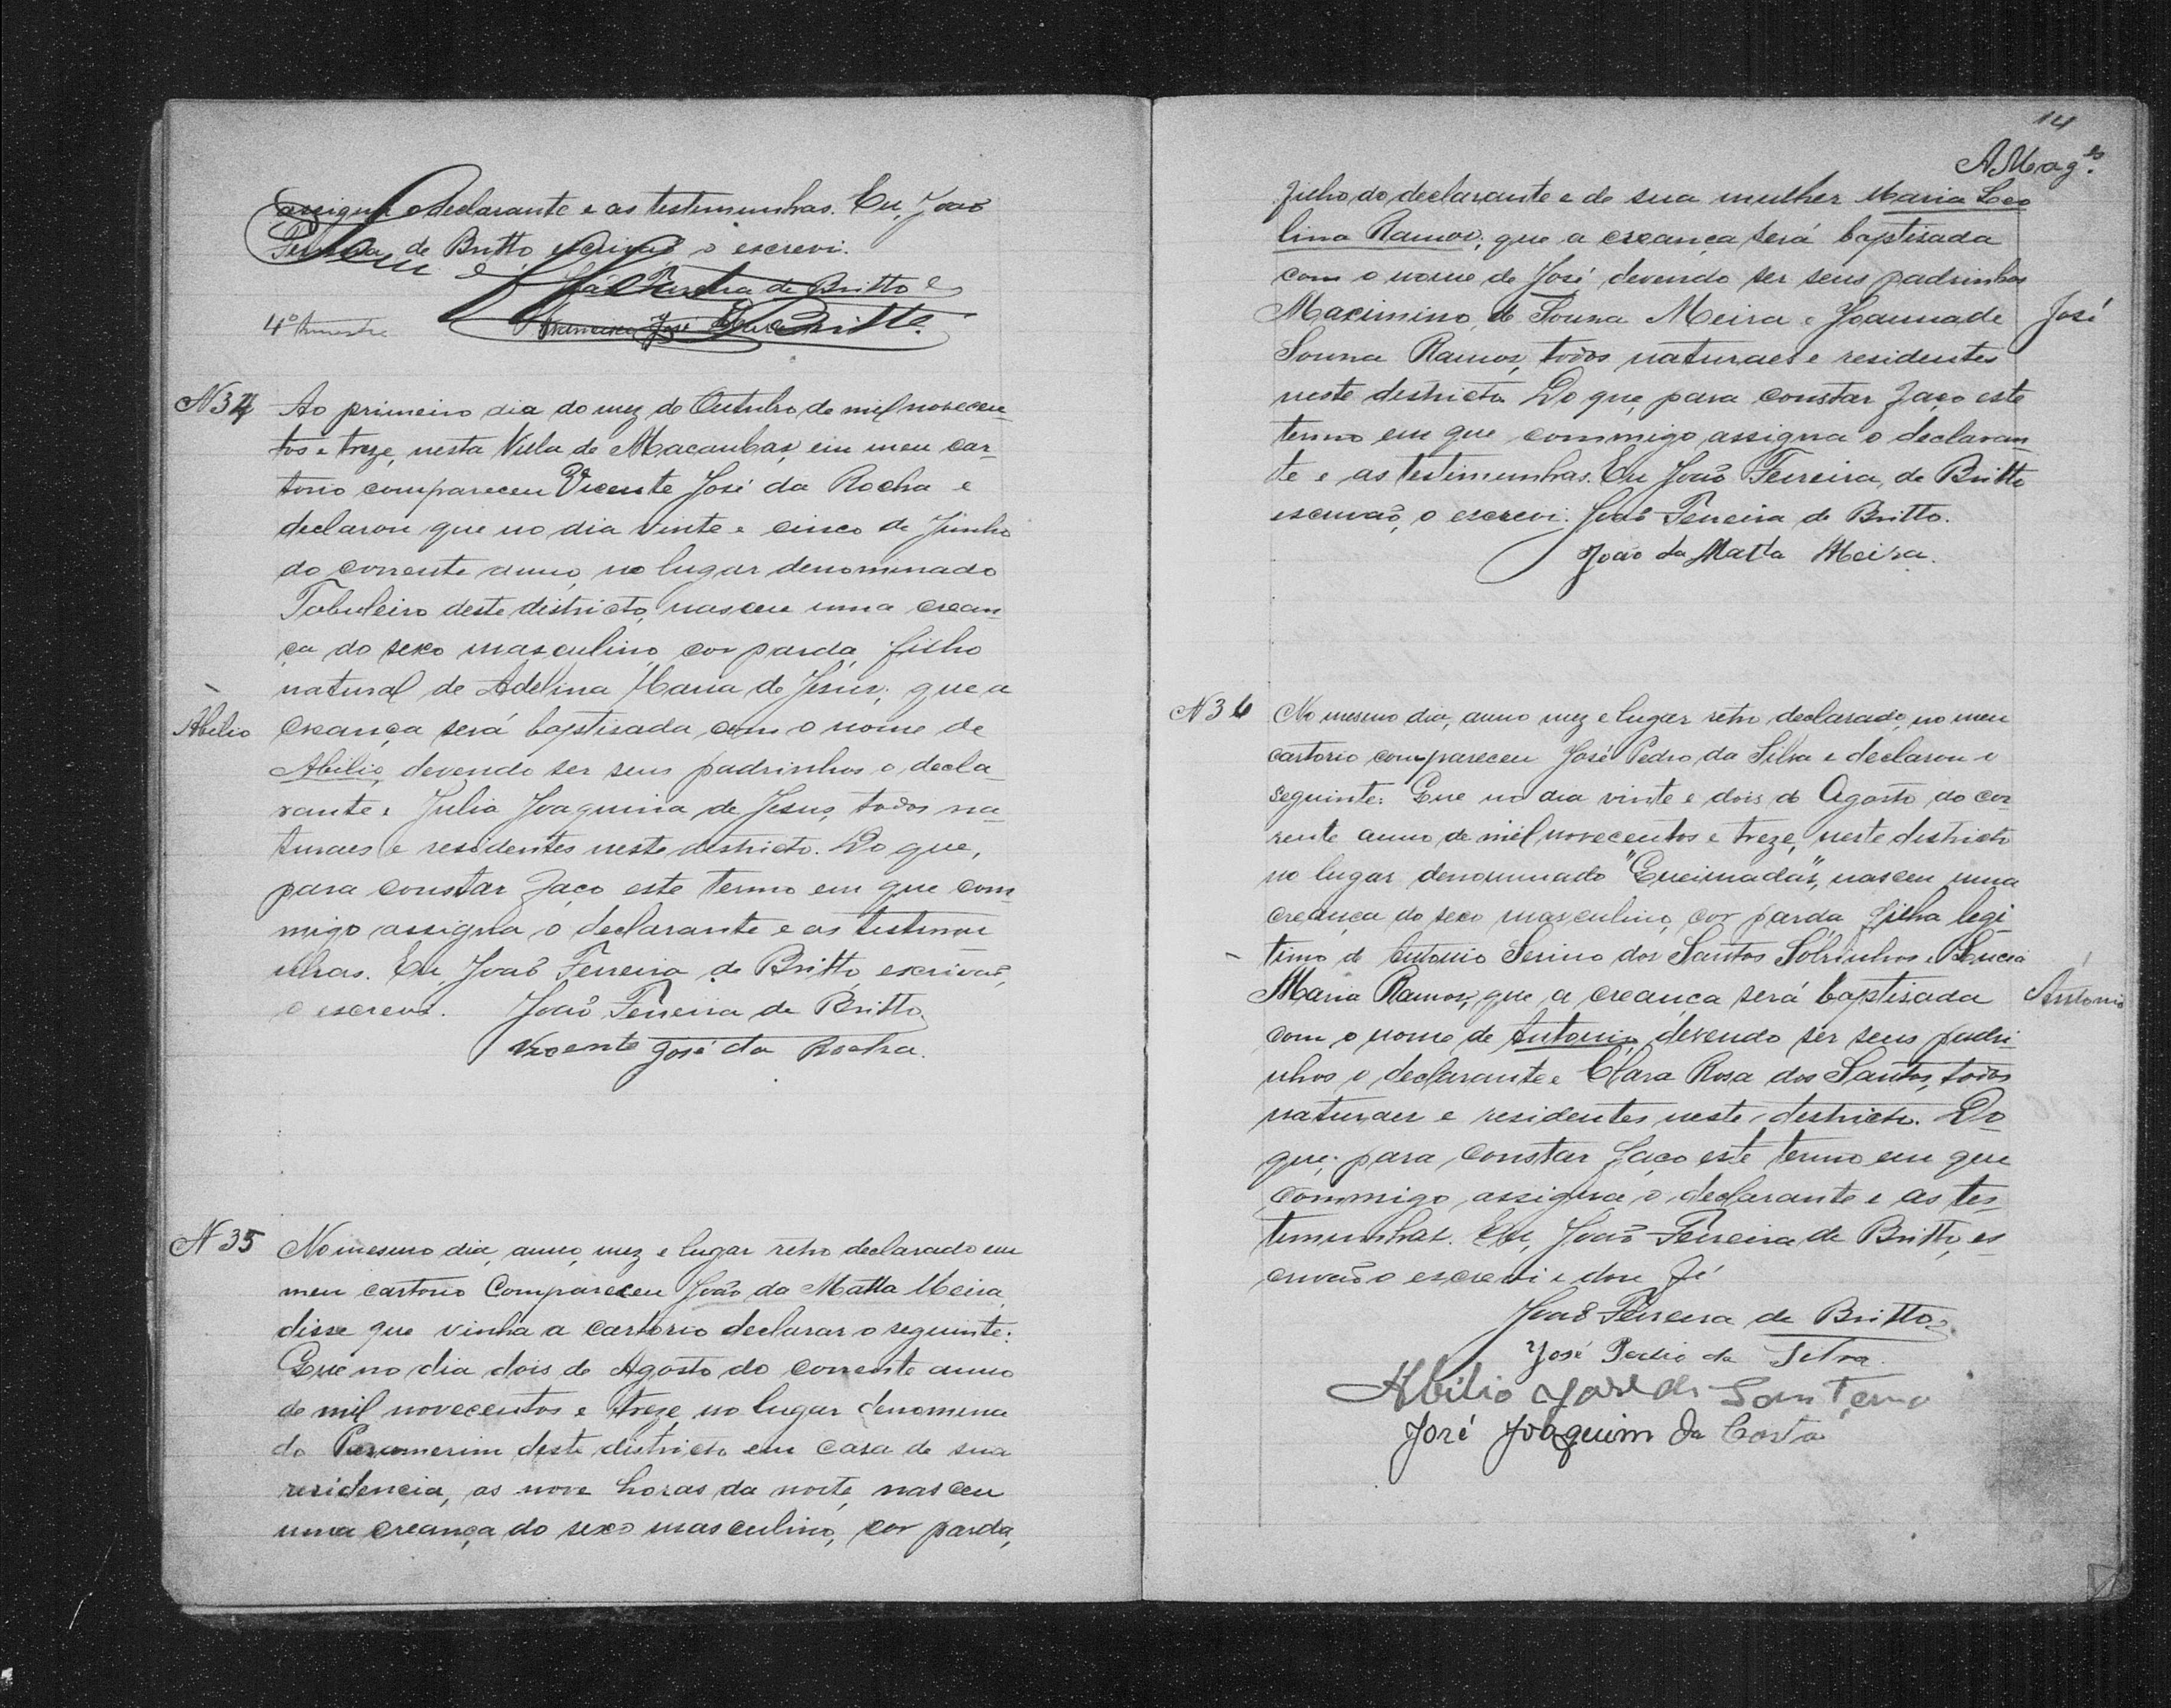 assigna o declarante e as testemunhas. Eu, João
Ferreira de Britto, escrivão o escrevi.
João Ferreira de Britto
Francisco José
4º trimestre
N 34
Ao primeiro dia do mez de Outubro, de mil novecen
tos e treze, nesta Villa de Macaubas, em meu car-
torio compareceu Vicente José da Rocha e
declarou que no dia vinte e cinco de Junho
do corrente anno, no lugar denominado
Taboleiro deste districto, nasceu uma crean-
ça do sexo masculino, cor parda, filho
natural de Adelina Maria de Jesus; que a
Abilio
creança será baptisada com o nome de
Abilio, devendo ser seus padrinhos o decla-
rante e Julia Joaquina de Jesus, todos na-
turaes e residentes neste districto. Do que,
para constar faço este termo em que com
migo assigna o declarante e as testemu
nhas. Eu, João Ferreira de Britto, escrivão,
o escrevi. João Ferreira de Britto
Vicente José da Rocha.
N 35
No mesmo dia, anno, mez e lugar retro declarado em
meu cartorio Compareceu João da Matta Meira,
disse que vinha a cartorio declarar o seguinte:
Que no dia dois de Agosto do corrente anno
de mil novecentos e treze, no lugar denomina
do Paramerim deste districto em casa de sua
residencia, as nove horas da noite, nasceu
uma creança do sexo masculino, cor parda,
14
A Mag.es
filho do declarante e de sua mulher Maria Leo
lina Ramos; que a creança será baptisada
com o nome de José devendo ser seus padrinhos
Maximino de Souza Meira e Joanna de
José
Souza Ramos, todos naturaes e residentes
neste districto. Do que, para constar faço este
termo em que commigo assigna o declaran
te e as testemunhas. Eu João Ferreira, de Britto
escrivão, o escrevi. João Ferreira de Britto.
João da Matta Meira.
N 36
No mesmo dia, anno mez e lugar retro declarado, no meu
cartorio compareceu José Pedro da Silva e declarou o
seguinte: Que no dia vinte e dois de Agosto do cor
rente anno de mil novecentos e treze, neste districto
no lugar denominado "Queimadas", nasceu uma
creança do sexo masculino, cor parda, filha legi
timo de Antonio Serino dos Santos Sobrinhos e Lucia
Maria Ramos; que a creança será baptisada
Antonio
com o nome de Antonio, devendo ser seus padri-
nhos o declarante e Clara Rosa dos Santos, todos
naturaes e residentes neste districto. Do
que; para constar faço este termo em que
commigo assigna o declarante e as tes
temunhas. Eu, João Ferreira de Britto, es
crivão o escrevi e dou fé
João Ferreira de Britto
José Pedro da Silva.
Abilio José de
José Joaquim da Costa